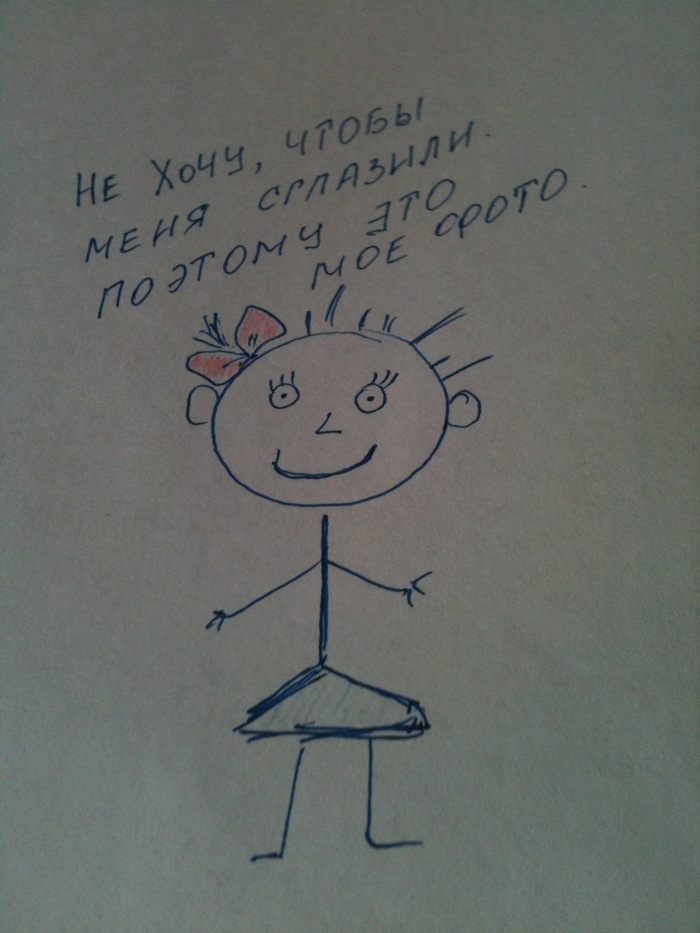 НЕ ХОЧУ, ЧТОБЫ
МЕНЯ СГЛАЗИЛИ.
ПОЭТОМУ ЭТО
МОЕ ФОТО.